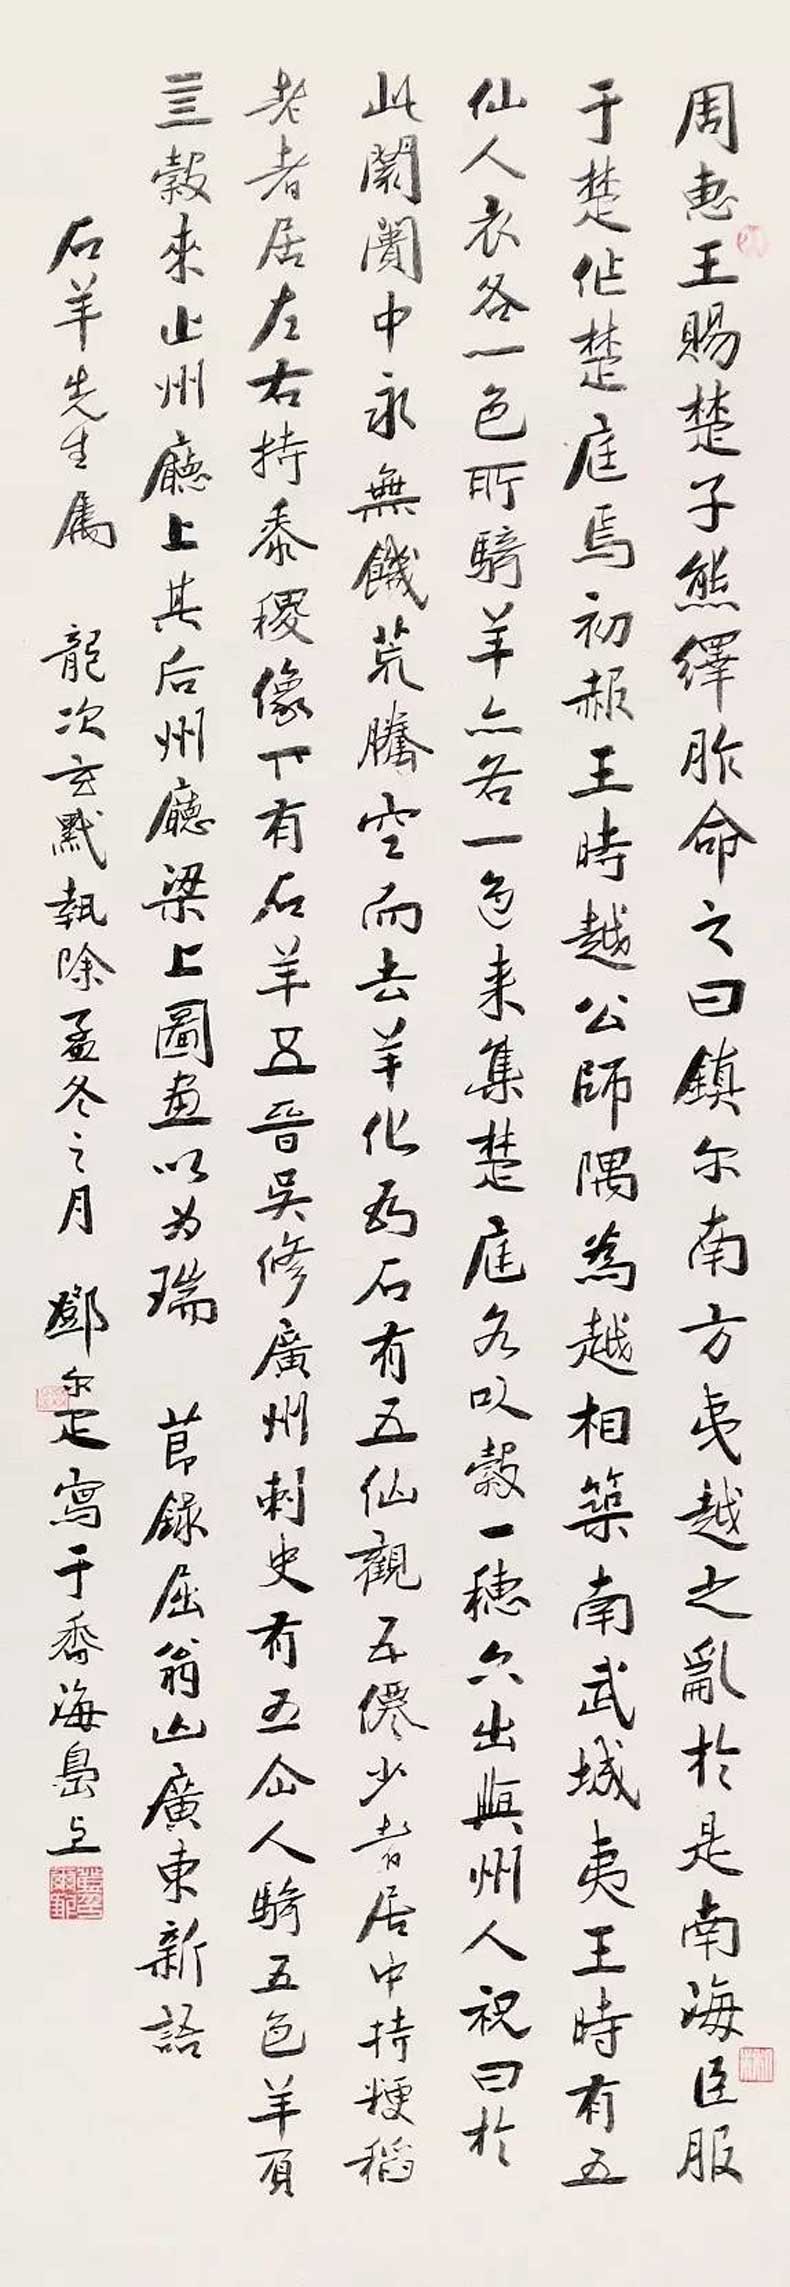 周惠王賜楚子熊繹胙命之曰鎮尔南方夷越之亂於是南海臣服
于楚作楚庭焉初赧王時越公師隅為越相築南武城夷王時有五
仙人衣各一色所騎羊亦各一色来集楚庭各以穀一穗六出與州人祝曰於
此闤闠中永無饑荒騰空而去羊化為石有五仙觀五僊少者居中持粳稻
老者居左右持黍稷像下有石羊五晉吳修廣州刺史有五仚人騎五色羊負
亖穀來止州廳上其后州廳梁上圖畫以為瑞 節錄屈翁山廣東新語
石羊先生属 龍次玄黓執除孟冬之月 鄧尔疋寫于香海島上